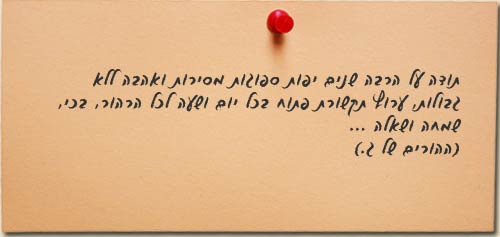 תודה על הרבה שנים יפות ספוגות מסירות ואהבה ללא
גבולות. ערוץ תקשורת פתוח בכל יום ושעה לכל הרהור, בכי,
שמחה ושאלה ...
(ההורים של ג.)